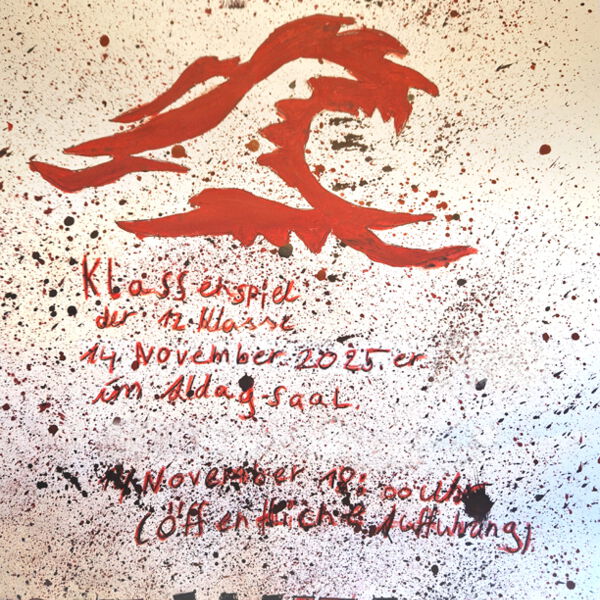 Klassenspiel
der 12. Klasse
14 November 2025 er
im Aldag-saal.
14 November 18:00 Uhr
(Öffentliche Aufführung)